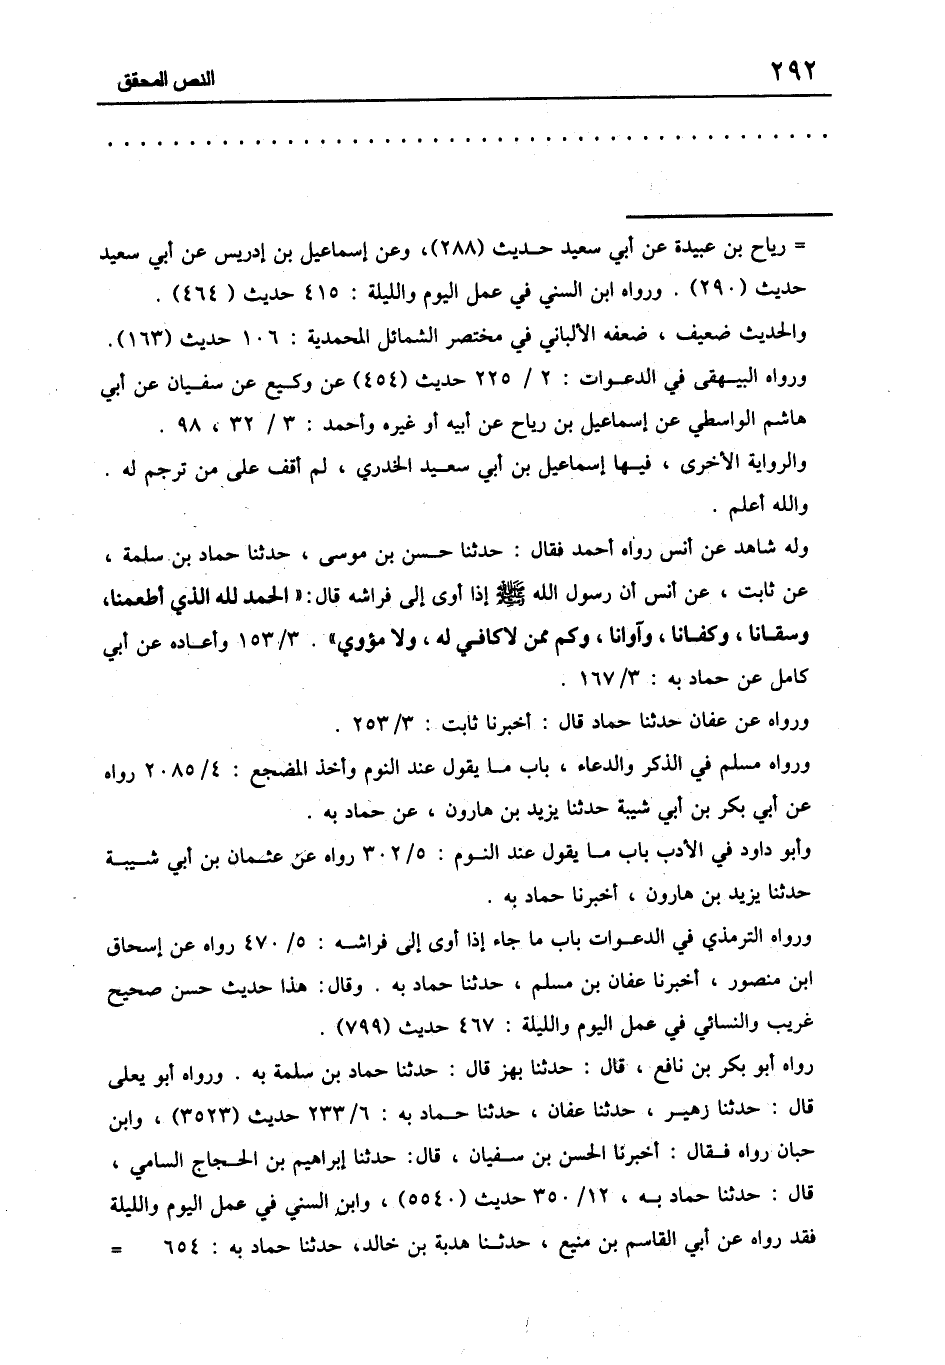 ٢٩٢ النص المحقق
. . . . . . . . . . . . . . . . . . . . . . . . . . . . . . . . . . . . . . . . .
= رياح بن عبيدة عن أبي سعيد حديث (٢٨٨)، وعن إسماعيل بن إدريس عن أبي سعيد
حديث (٢٩٠) . ورواه ابن السني في عمل اليوم والليلة : ٤١٥ حديث ( ٤٦٤) .
والحديث ضعيف ، ضعفه الألباني في مختصر الشمائل المحمدية : ١٠٦ حديث (١٦٣).
ورواه البيهقى في الدعوات : ٢ / ٢٢٥ حديث (٤٥٤) عن وكيع عن سفيان عن أبي
هاشم الواسطي عن إسماعيل بن رياح عن أبيه أو غيره وأحمد : ٣ / ٣٢ ، ٩٨ .
والرواية الأخرى ، فيها إسماعيل بن أبي سعيد الخدري ، لم أقف على من ترجم له .
والله أعلم .
وله شاهد عن أنس رواه أحمد فقال : حدثنا حسن بن موسى ، حدثنا حماد بن سلمة ،
عن ثابت ، عن أنس أن رسول الله ﷺ إذا أوى إلى فراشه قال:« الحمد لله الذي أطعمنا،
وسقانا ، وكفانا ، وآوانا ، وكم ممن لاكافي له ، ولا مؤوي» . ١٥٣/٣ وأعاده عن أبي
كامل عن حماد به : ١٦٧/٣ .
ورواه عن عفان حدثنا حماد قال : أخبرنا ثابت : ٢٥٣/٣ .
ورواه مسلم في الذكر والدعاء ، باب ما يقول عند النوم وأخذ المضجع : ٢٠٨٥/٤ رواه
عن أبي بكر بن أبي شيبة حدثنا يزيد بن هارون ، عن حماد به .
وأبو داود في الأدب باب ما يقول عند النوم : ٣٠٢/٥ رواه عن عثمان بن أبي شيبة
حدثنا يزيد بن هارون ، أخبرنا حماد به .
ورواه الترمذي في الدعوات باب ما جاء إذا أوى إلى فراشه : ٤٧٠/٥ رواه عن إسحاق
ابن منصور ، أخبرنا عفان بن مسلم ، حدثنا حماد به . وقال: هذا حديث حسن صحيح
غريب والنسائي في عمل اليوم والليلة : ٤٦٧ حديث (٧٩٩) .
رواه أبو بكر بن نافع ، قال : حدثنا بهز قال : حدثنا حماد بن سلمة به . ورواه أبو يعلى
قال : حدثنا زهير ، حدثنا عفان ، حدثنا حماد به : ٢٣٣/٦ حديث (٣٥٢٣) ، وابن
حبان رواه فقال : أخبرنا الحسن بن سفيان ، قال: حدثنا إبراهيم بن الحجاج السامي ،
قال : حدثنا حماد به ، ٣٥٠/١٢ حديث (٥٥٤٠) ، وابن السني في عمل اليوم والليلة
فقد رواه عن أبي القاسم بن منيع ، حدثنا هدبة بن خالد، حدثنا حماد به : ٦٥٤ =